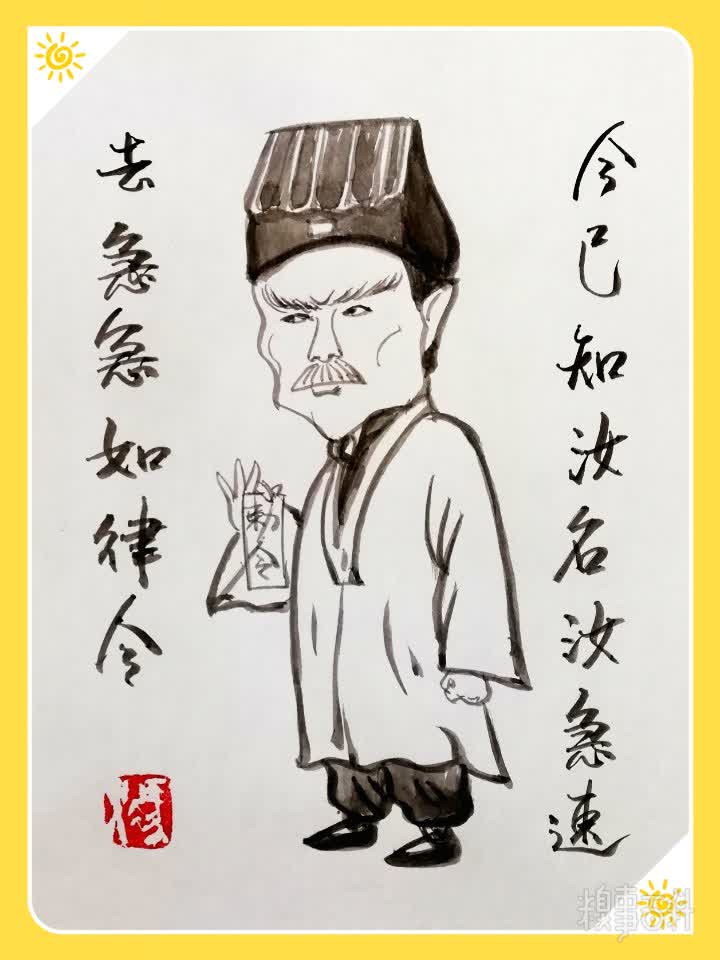 今已知汝名汝急速
去急急如律令
敕令
糗事百科